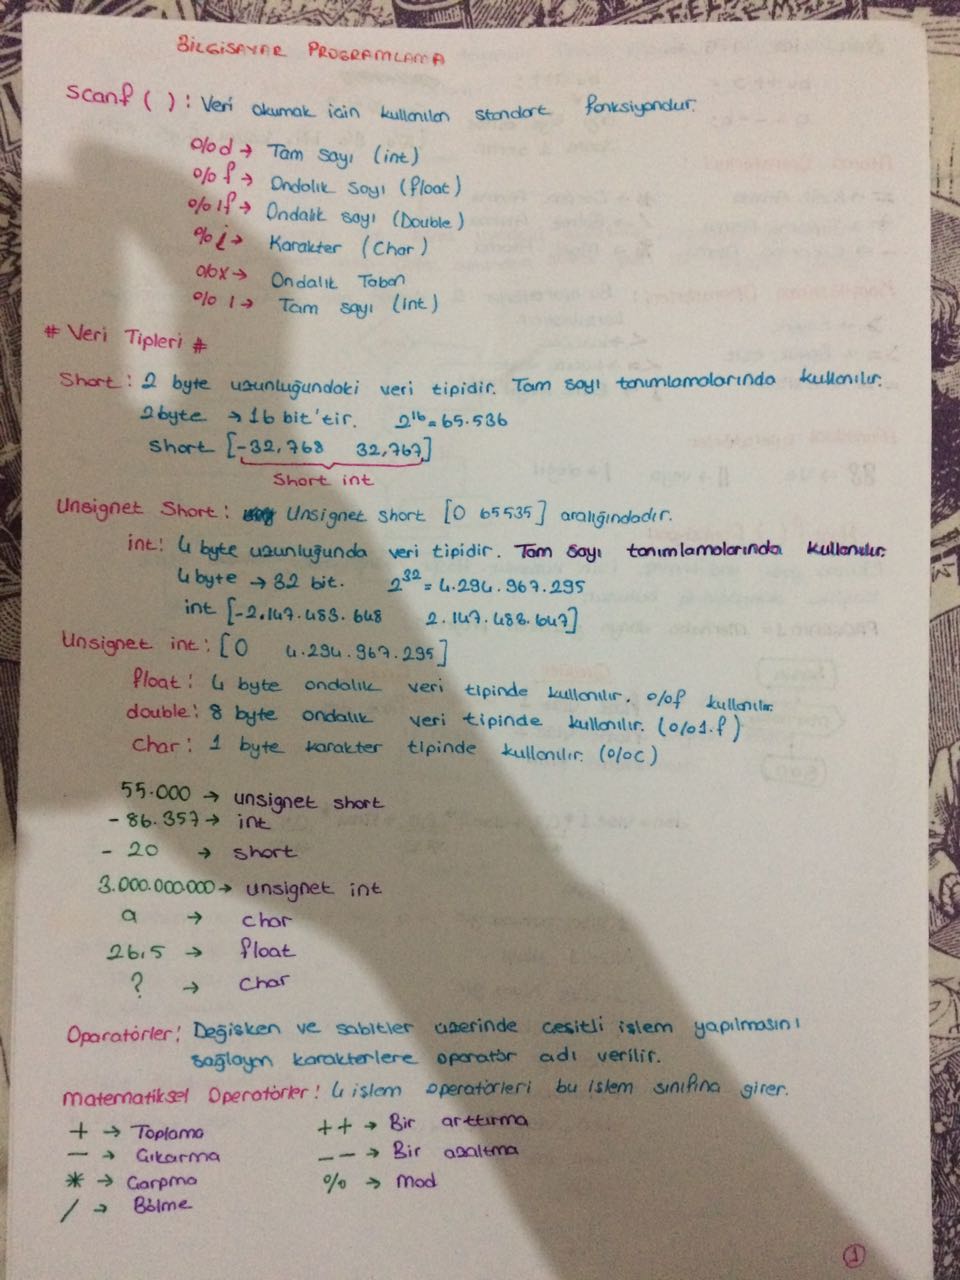 BİLGİSAYAR PROGRAMLAMA
Scanf ( ) : Veri okumak için kullanılan standart fonksiyondur.
%d → Tam sayı (int)
%f → Ondalık sayı (float)
%lf → Ondalık sayı (Double)
%i → Karakter (Char)
%x → Ondalık Taban
%ı → Tam sayı (int)
# Veri Tipleri #
Short : 2 byte uzunluğundaki veri tipidir. Tam sayı tanımlamalarında kullanılır.
2 byte → 16 bit'tir. 2¹⁶ = 65.536
short [-32,768 32,767]
Short int
Unsignet Short : Unsignet short [0 65535] aralığındadır.
int : 4 byte uzunluğunda veri tipidir. Tam sayı tanımlamalarında kullanılır.
4 byte → 32 bit. 2³² = 4.294.967.295
int [-2.147.483.648 2.147.483.647]
Unsignet int : [0 4.294.967.295]
float : 4 byte ondalık veri tipinde kullanılır. %f kullanılır.
double : 8 byte ondalık veri tipinde kullanılır. (%1.f)
Char : 1 byte karakter tipinde kullanılır. (%c)
55.000 → unsignet short
- 86.357 → int
- 20 → short
3.000.000.000 → unsignet int
a → char
26,5 → float
? → char
Oparatörler : Değişken ve sabitler üzerinde çeşitli işlem yapılmasını
sağlayan karakterlere oparatör adı verilir.
Matematiksel Operatörler : 4 işlem operatörleri bu işlem sınıfına girer.
+ → Toplama ++ → Bir arttırma
- → Çıkarma -- → Bir azaltma
* → Çarpma % → Mod
/ → Bölme
1